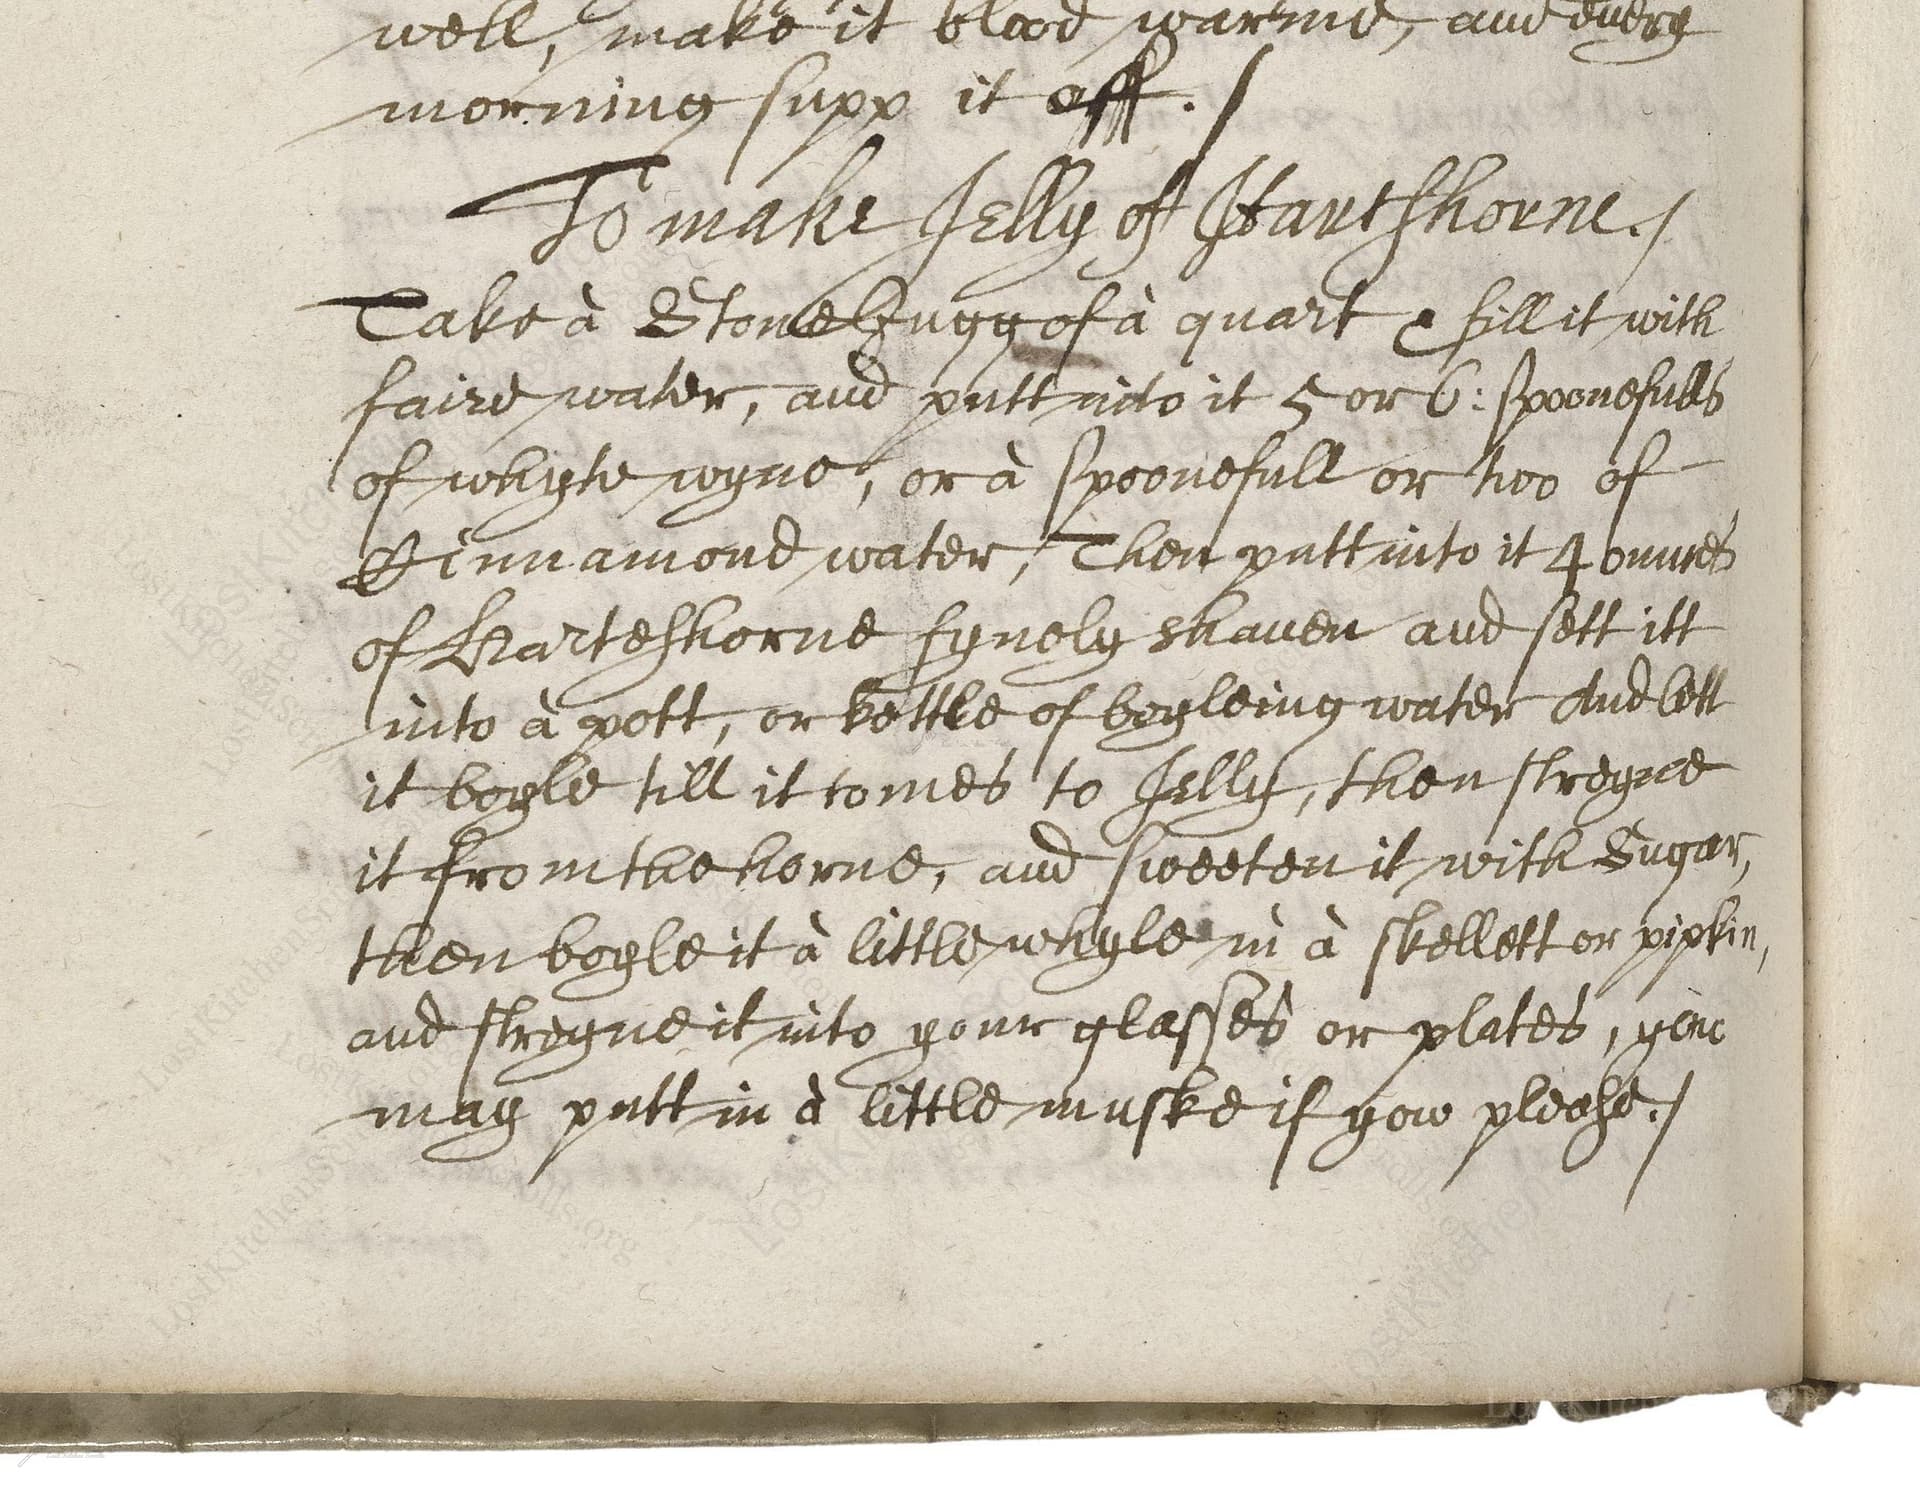 well, make it blood warme, and every
morning supp it off ./
To make Jelly of Hartshorne ./
Take à Stone Jugg of à quart & fill it with
faire water, and putt into it 5 or 6: spoonefulls
of whyte wyne, or à spoonefull or two of
Cinnamond water, Then putt into it 4 ounces
of Harteshorne fynely shaven and sett itt
into à pott, or kettle of boyleing water And lett
it boyle till it comes to Jelly, then streyne
it from the horne, and sweeten it with Sugar,
then boyle it à little whyle in à skellett or pipkin,
and streyne it into your glasses or plates, you
may putt in à little muske if yow please ./